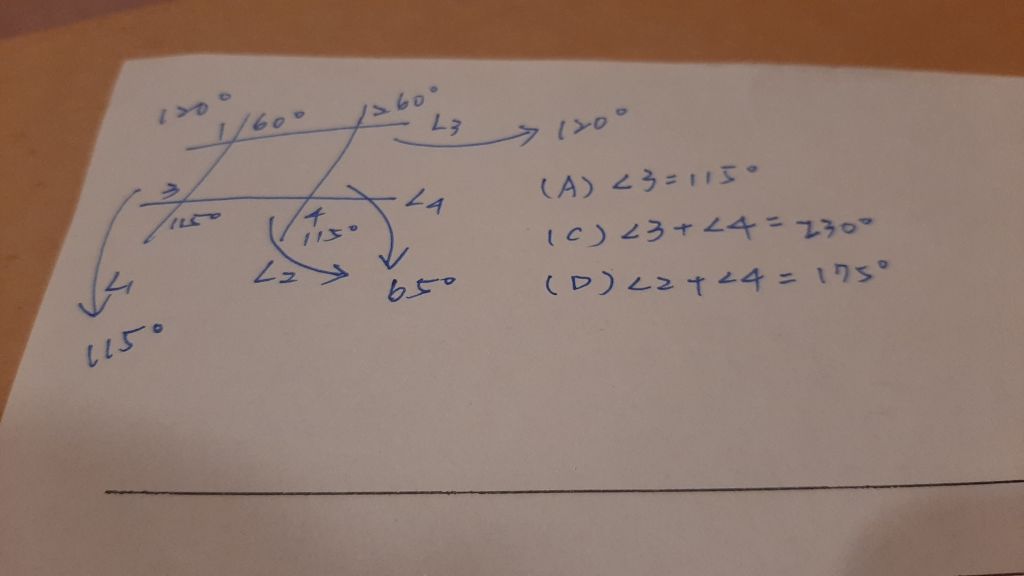 120°
1 60°
1260°
L3
120°
3
115°
4
115°
∠4
(A) ∠3=115°
(C) ∠3+∠4=230°
(D) ∠2+∠4=175°
∠1
∠2
65°
115°